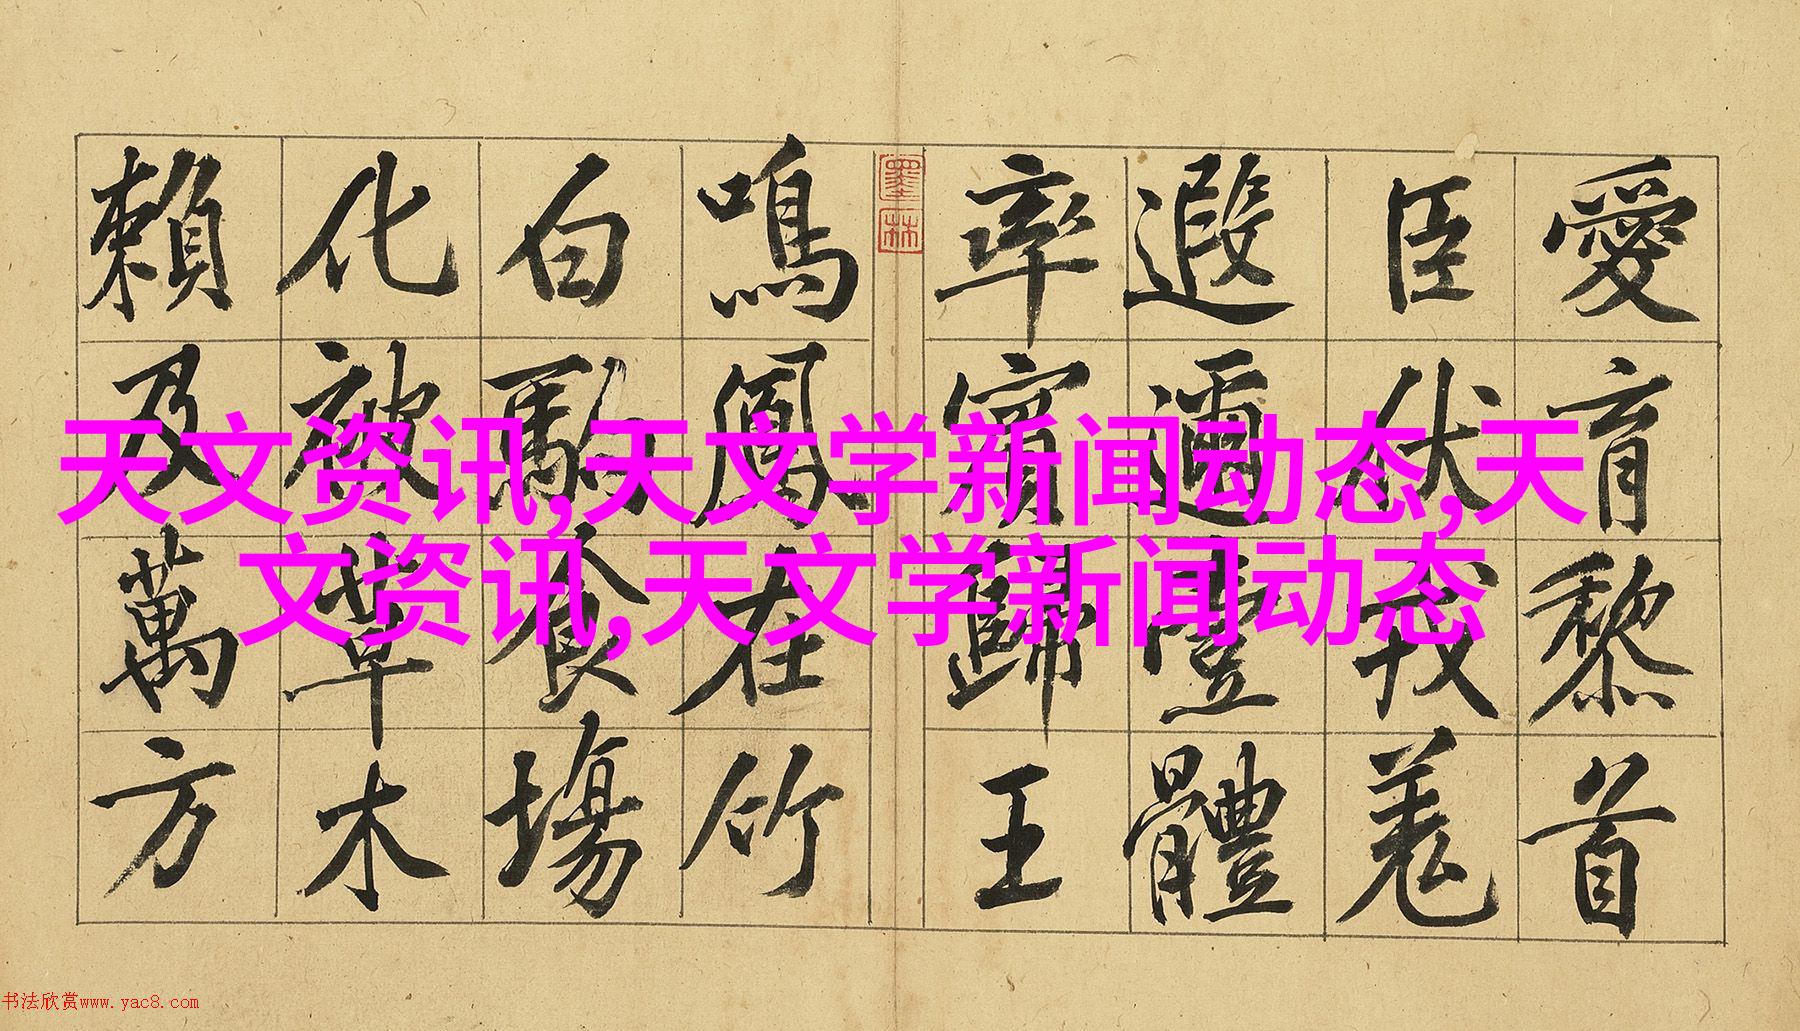 愛育黎首
臣伏戎羌
遐邇壹體
率賓歸王
墨林
鳴鳳在竹
白駒食場
化被草木
賴及萬方
天文资讯,天文学新闻动态,天
文资讯,天文学新闻动态
书法欣赏www.yac8.com